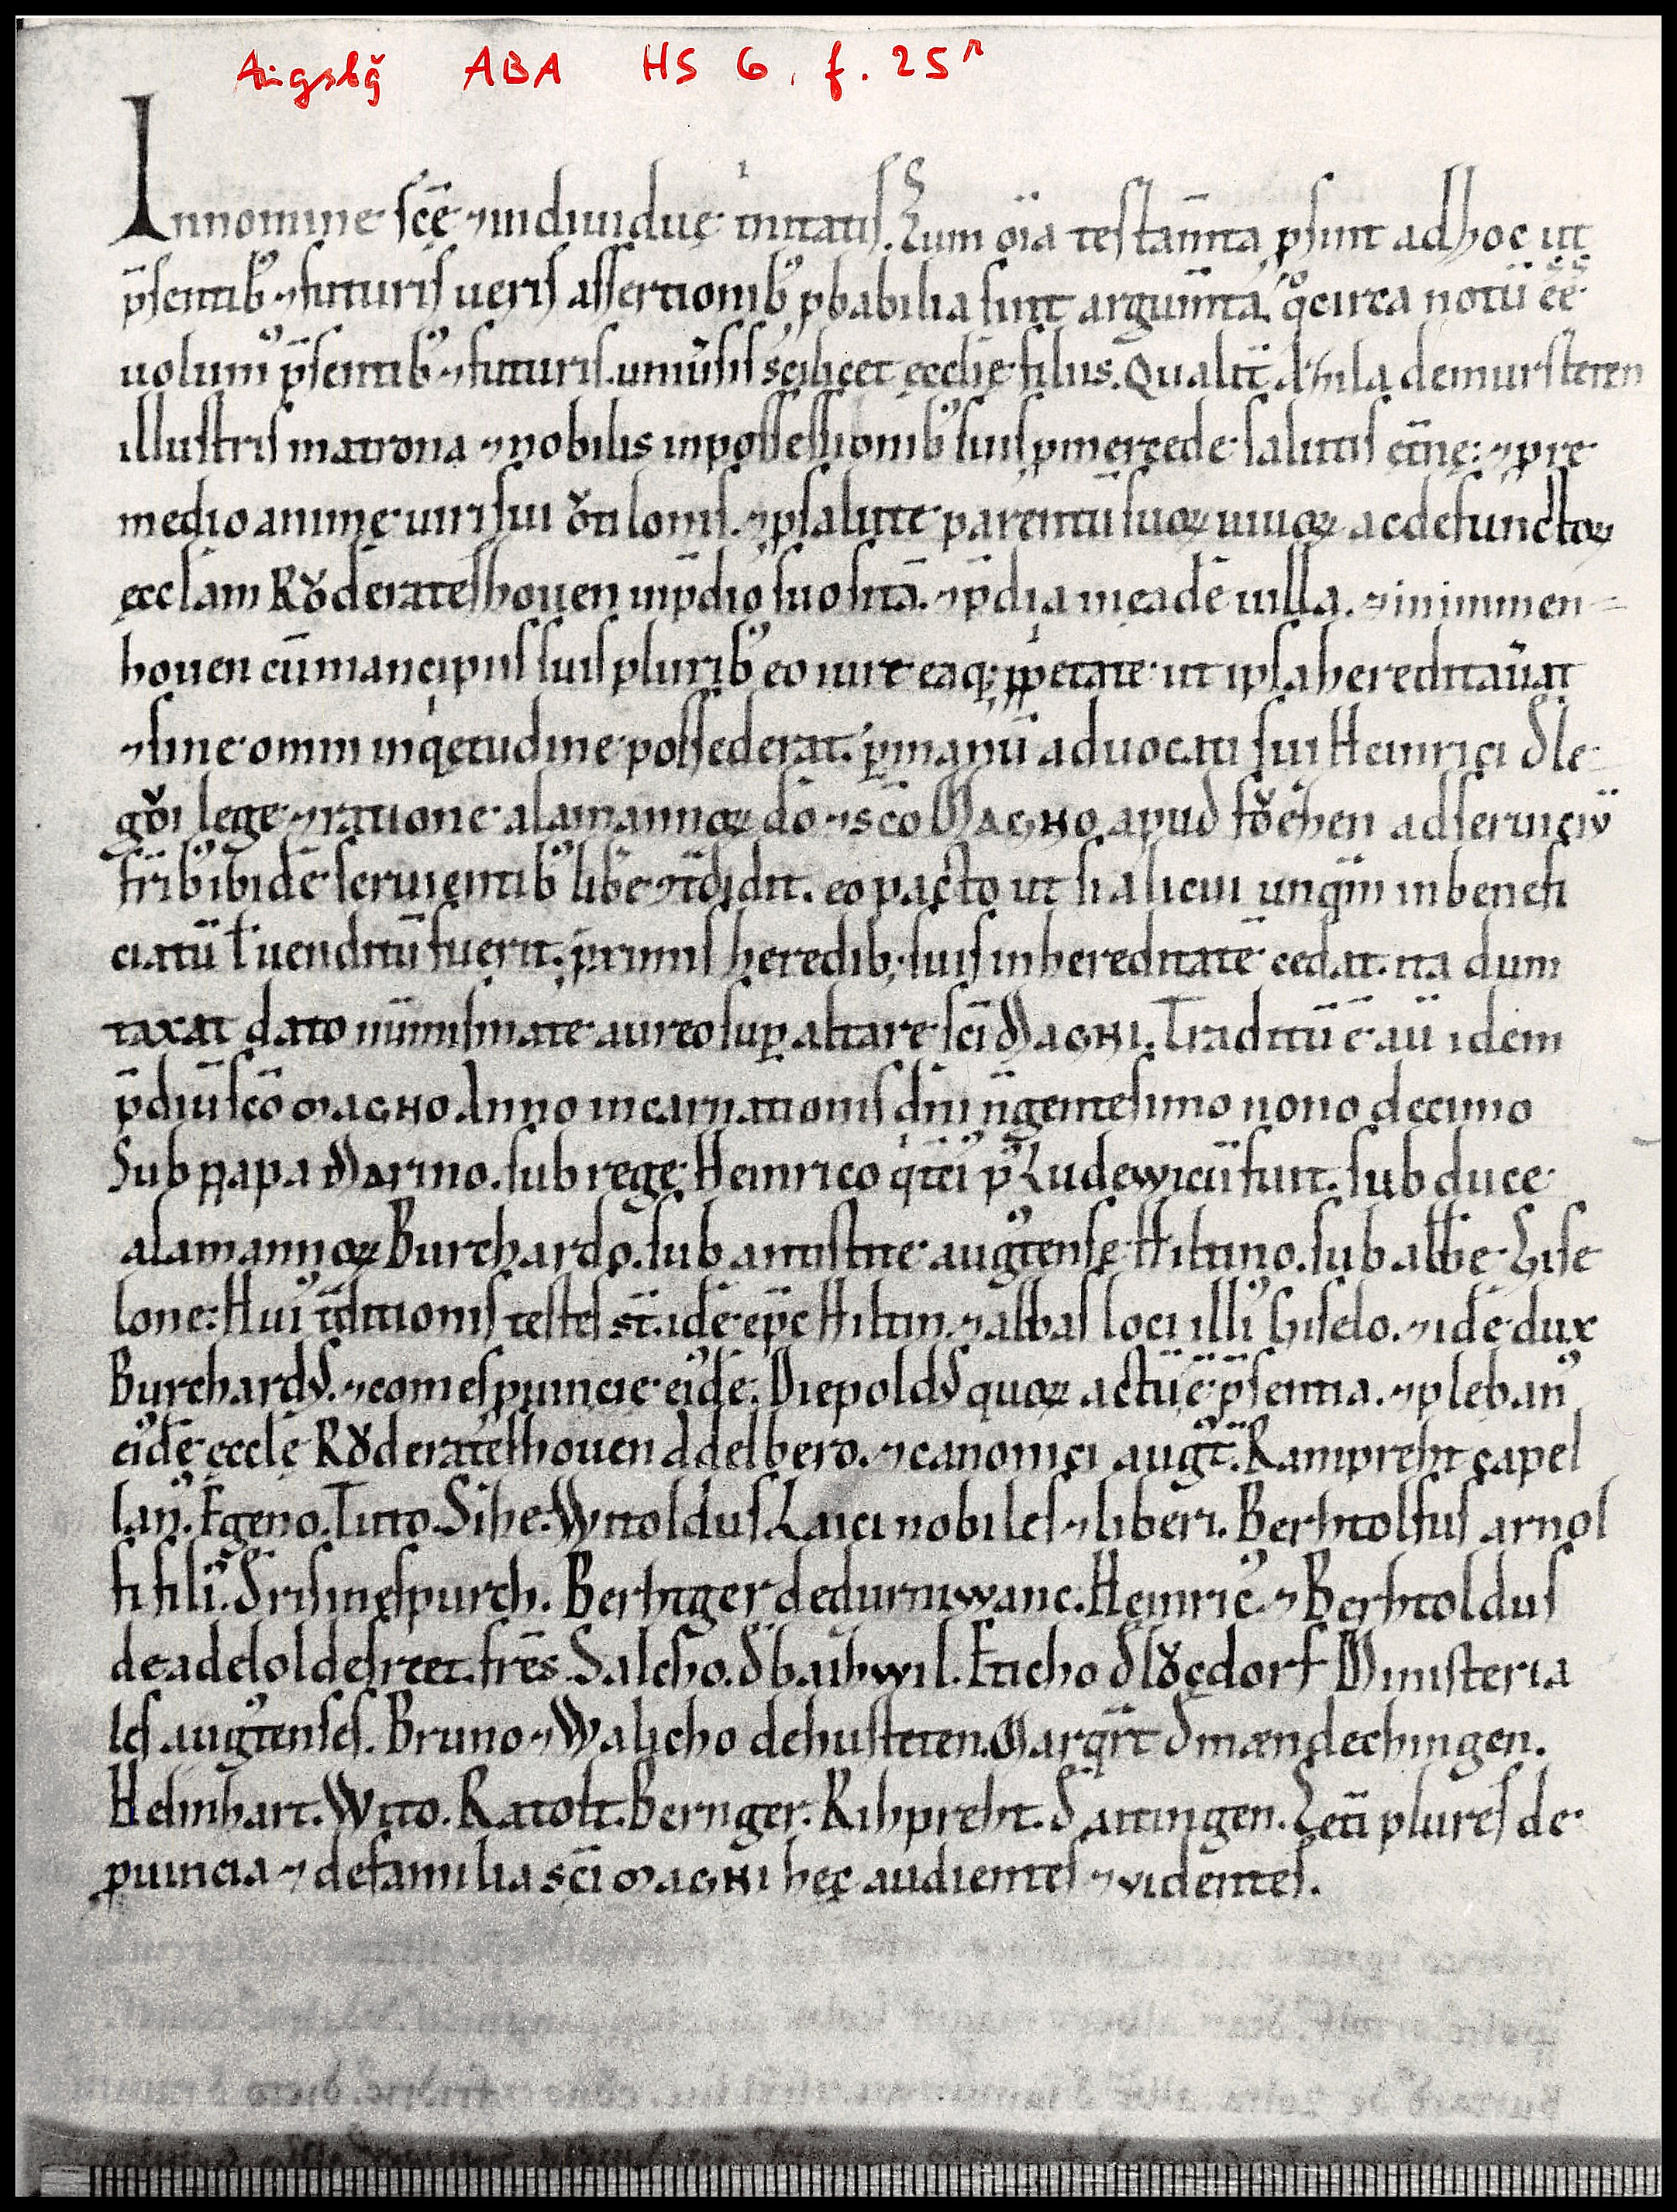 Augsbg ABA HS 6, f. 25r
Innomine sc̄ę ⁊ indiuiduę tͥnitatis. Cum oīa testam̄ta p̱sint adhoc ut
p̄sentib᾿ ⁊ futuris ueris assertionib᾿ ꝓbabilia sint argum̄ta. qͦcirca notū ēē
uolum᾿ p̄sentib᾿ ⁊ futuris. uniūsis scilicet ęcclię filiis. Qualit̄ demursteten
illustris matrona ⁊ nobilis inpossessionib᾿ suis ꝓmercede salutis et̄nę: ⁊ ꝓre
medio animę uiri sui ⁊ ꝓsalute parentū suoꝝ uiuoꝝ acdefunctoꝝ
ęccl̄am Rǒderateshouen inp̄dio suo sitā. ⁊ p̄dia ineadē uilla. ⁊ inimmen=
houen cūmancipiis suis plurib᾿ eo iure eaq; ꝓp̱ͥetate ut ipsa hereditaūat
⁊ sine omni inqͥetudine possederat. p̱manū aduocati sui Heinrici đle
gǒi lege ⁊ ratione alamannoꝝ dō ⁊ sc̄o MAGNO apud fǒchen adseruiciū
fr̄ib᾿ ibidē seruientib᾿ libe ⁊ t̄didit. eo pacto ut si alicui unqᷓm inbenefi
ciatū ł uenditū fuerit. p̱rimis heredib; suis inhereditatē cedat. ita dum
taxat dato nūmismate aureo sup̱ altare sc̄i MAGNI. Traditū ē aū idem
p̄diū sc̄o MAGNO Anno incarnationis dn̄i n̄gentesimo nono decimo
Sub papa Marino. sub rege Heinrico qͥ Ludewicū fuit. sub duce
alamannoꝝ Burchardo. sub antistite aug᾿tense Hiltino. sub abb̄e Gise
lone: Hui᾿ t̄ditionis testes st̄. idē ep̄c Hiltin. ⁊ abbas loci illi᾿ Giselo. ⁊ idē dux
Burchardꝰ. ⁊ comes ꝓuincie ei᾿dē: Diepoldꝰ quoꝝ actū ē p̄sentia. ⁊ pleban᾿
ei᾿dē ęccl̄ę Rǒderateshouen Adelbero. ⁊ canonici aug᾿t̄. Rampreht capel
lan᾿. Egeno. Titto. Sihe. Witoldus. Laici nobiles ⁊ liberi. Berhtolfus arnol
fi fili᾿. đrisinespurch. Berhtger dedurniwanc. Heinric᾿ ⁊ Berhtoldus
deadeloldesreet. fr̄es. Salcho. đbaihwil. Eticho đlǒcdorf Ministeria
les aug᾿tenses. Bruno ⁊ Walicho dehusteten. Marqͣrt đmændechingen.
Helinhart. Wito. Ratolt. Bernger. Rihpreht. đ attingen. Cet̄i plures de
ꝓuincia ⁊ defamilia sc̄i MAGNI hęc audientes ⁊ videntes.